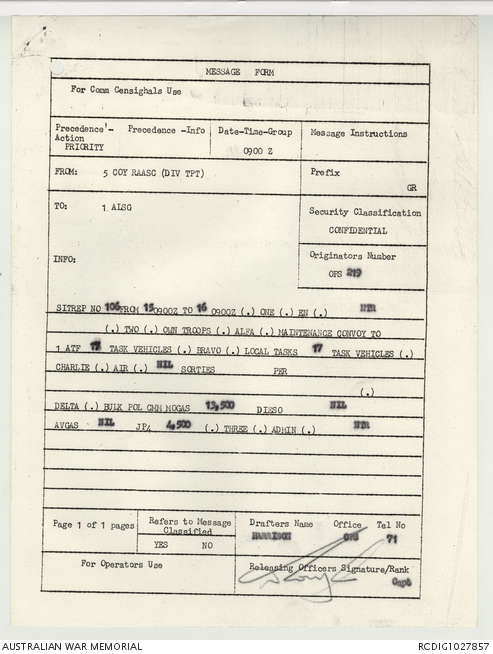 MESSAGE FORM
For Comm Censighals Use
Precedence'- Precedence -Info Date-Time-Group Message Instructions
Action
PRIORITY 0900 Z
FROM: 5 COY RAASC (DIV TPT) Prefix
GR
TO: 1 ALSG Security Classification
CONFIDENTIAL
INFO: Originators Number
OPS 219
SITREP NO 106 FROM 150900Z TO 16 0900Z (.) ONE (.) EN (.) NTR
(.) TWO (.) OWN TROOPS (.) ALFA (.) MAINTENANCE CONVOY TO
1 ATF TASK VEHICLES (.) BRAVO (.) LOCAL TASKS 17 TASK VEHICLES (.)
CHARLIE (.) AIR (.) NIL SORTIES PER
(.)
DELTA (.) BULK POL CMM MOGAS 13,500 DIESO NIL
AVGAS NIL JP4 4,500 (.) THREE (.) ADMIN (.) NTR
Page 1 of 1 pages Refers to Message Drafters Name Office Tel No
Classified HARRISON OPS 71
YES NO
For Operators Use Releasing Officers Signature/Rank
Capt
AUSTRALIAN WAR MEMORIAL RCDIG1027857